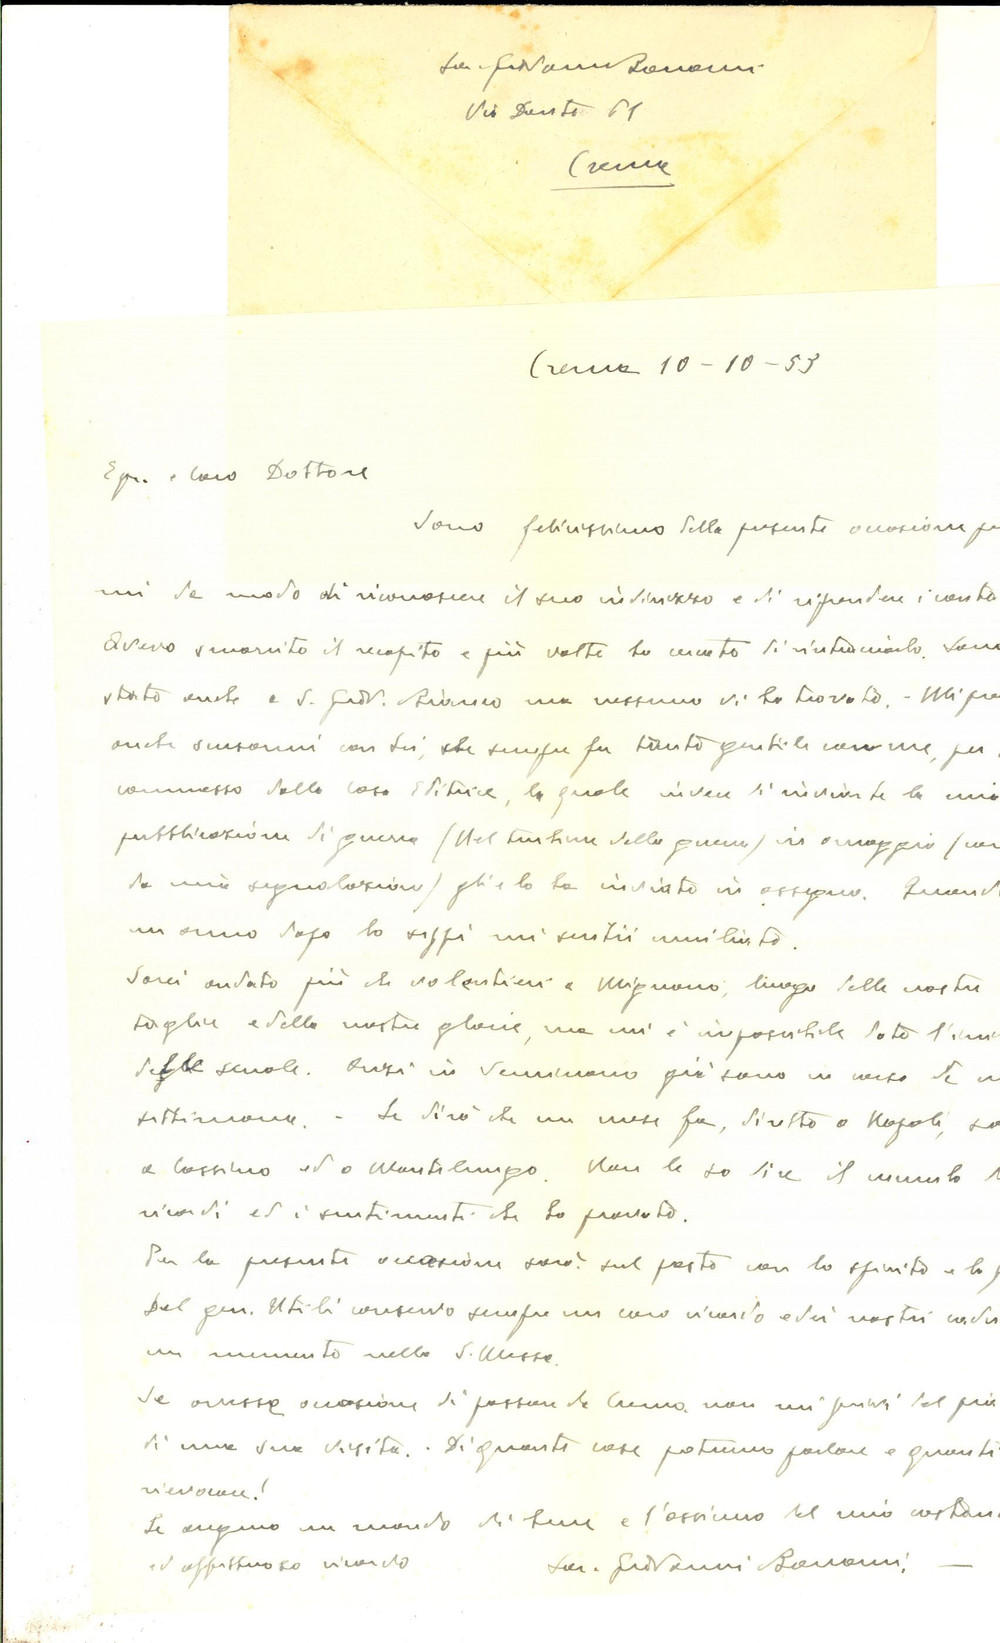 Sac. Giovanni Bonomi
Via Dante 61
Crema
Crema 10-10-53
Egr. e caro Dottore
Sono felicissimo della presente occasione
mi da modo di riconoscere il suo indirizzo e di riprendere i
Avevo smarrito il recapito e più volte ho cercato di rintracciarlo.
stato anche a S. Giov. Bianco ma nessuno vi ho trovato. - Mi
anche scusarmi con Lei, che sempre fu tanto gentile con me, per
commesso dalla Casa Editrice, la quale invece di inviarle la mia
pubblicazione di guerra (Nel turbine della guerra) in omaggio
da mia segnalazione) gliela ha inviata in assegno.
un anno dopo lo seppi mi sentii umiliato.
Sarei andato più che volentieri a Mignano, luogo delle nostre
e della nostre glorie, ma mi è impossibile dato
delle scuole. Anzi in Seminario già sono in corso da
settimana. - Le dirò che un mese fa, diretto a Napoli,
a Cassino ed a Montelungo. Non le so dire il cumulo
ricordi ed i sentimenti che ho provato.
Per la presente occasione sarò sul posto con lo spirito e la
Del gen. Utili conservo sempre un caro ricordo e dei nostri
un memento nella S. Messa.
Se avesse occasione di passare da Crema non mi privi del
di una sua visita. - Di quante cose potremo parlare e quanti
rievocare!
Le auguro un mondo di bene e l'assicuro del mio
ed affettuoso ricordo
Sac. Giovanni Bonomi. —